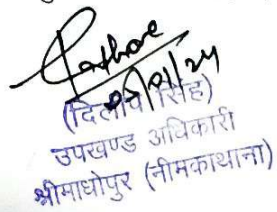 Rathore
05/01/24
(दिलीप सिंह)
उपखण्ड अधिकारी
श्रीमाधोपुर (नीमकाथाना)